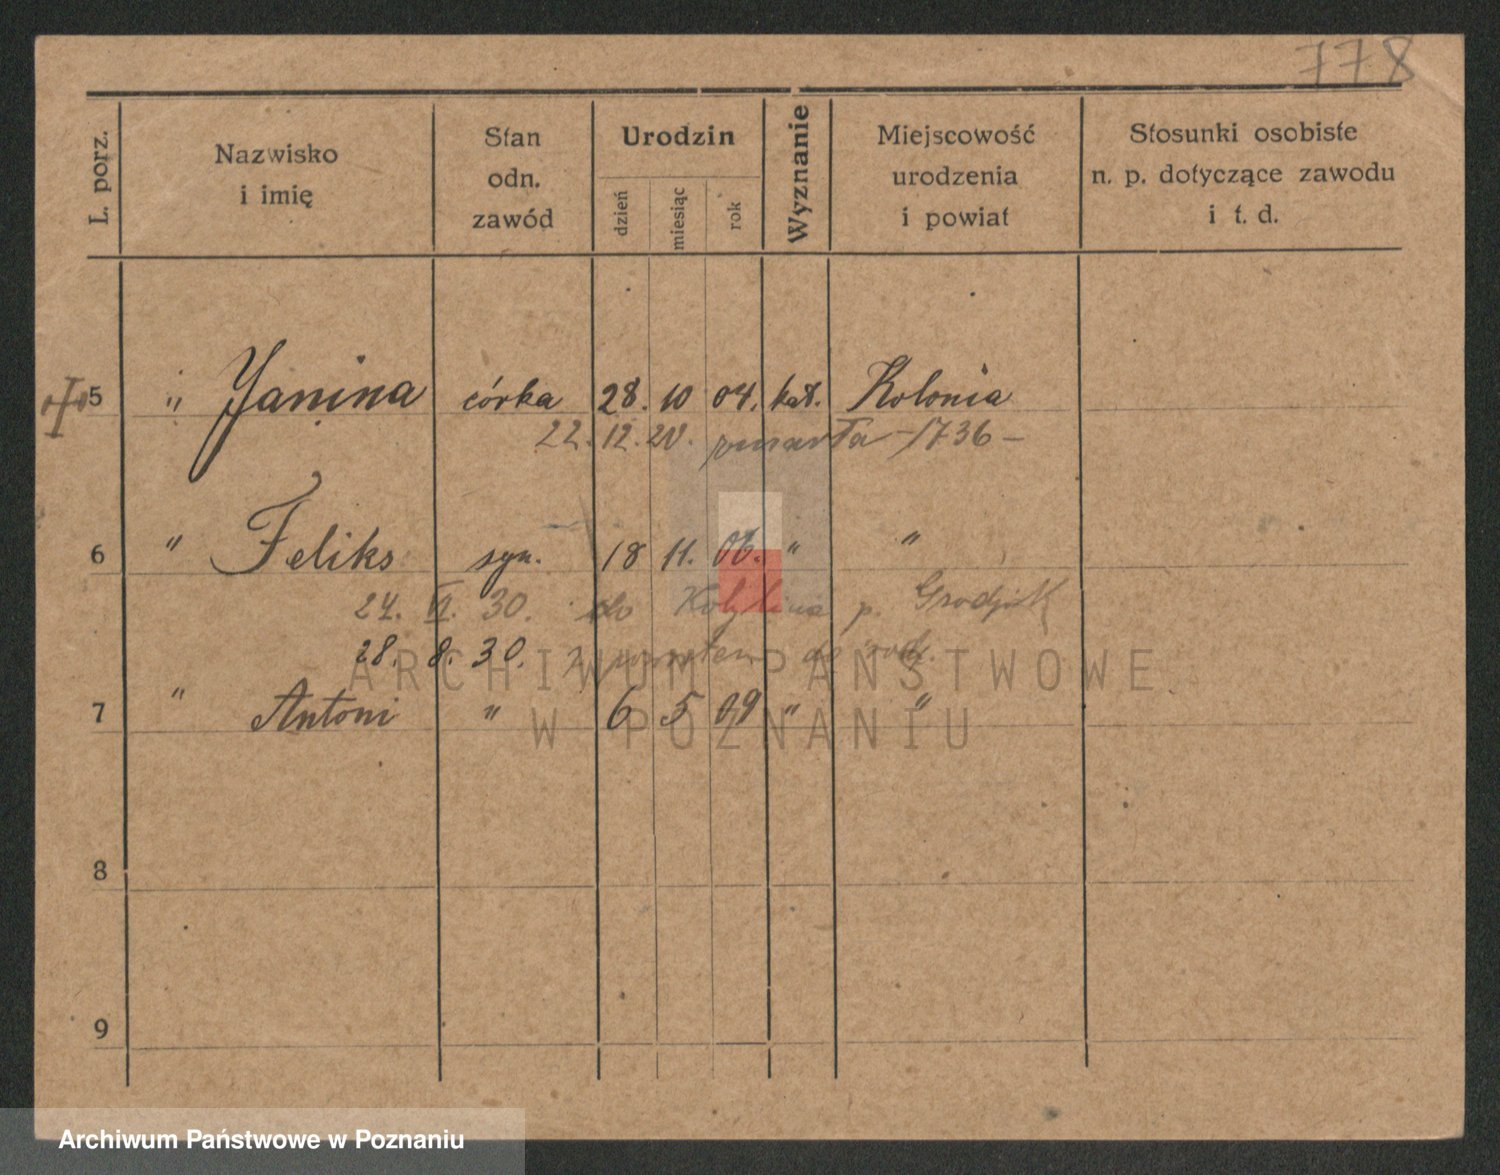 778
L. porz.
Nazwisko
i imię
Stan
odn.
zawód
Urodzin
dzień
miesiąc
rok
Wyznanie
Miejscowość
urodzenia
i powiat
Stosunki osobiste
n. p. dotyczące zawodu
i t. d.
5 " Janina córka 28. 10 04. kat. Kolonia
22. 12. 20. zmarła - 1736 -
6 " Feliks syn. 18 11. 06. " "
24. VI. 30. do p.
28. 8. 30. z powrotem do rodz.
7 " Antoni " 6 5 09 " "
8
9
ARCHIWUM PAŃSTWOWE
W POZNANIU
Archiwum Państwowe w Poznaniu